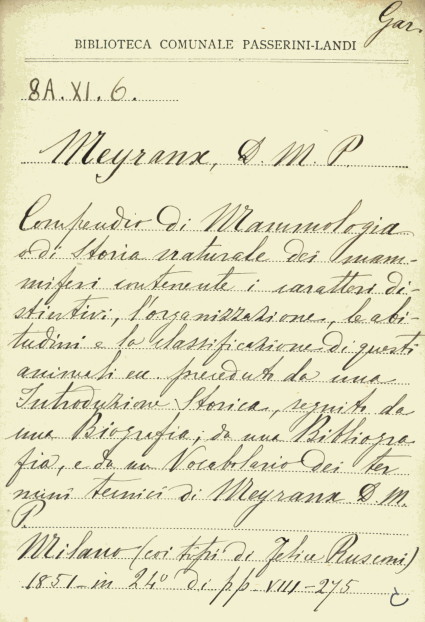 Gar.
BIBLIOTECA COMUNALE PASSERINI-LANDI
8A. XI. 6.
Meyranx, D. M. P.
Compendio di Mammologia
o di Storia naturale dei mam-
miferi contenente i caratteri di-
stintivi, l'organizzazione, le abi-
tudini e la classificazione di questi
animali ec preceduto da una
Introduzione Storica, seguito da
una Biografia, da una Bibliogra
fia, e da un Vocabolario dei ter
mini tecnici di Meyranx D. M.
P.
Milano (coi tipi di Felice Rusconi)
1851 - in 24° di pp. VIII - 275